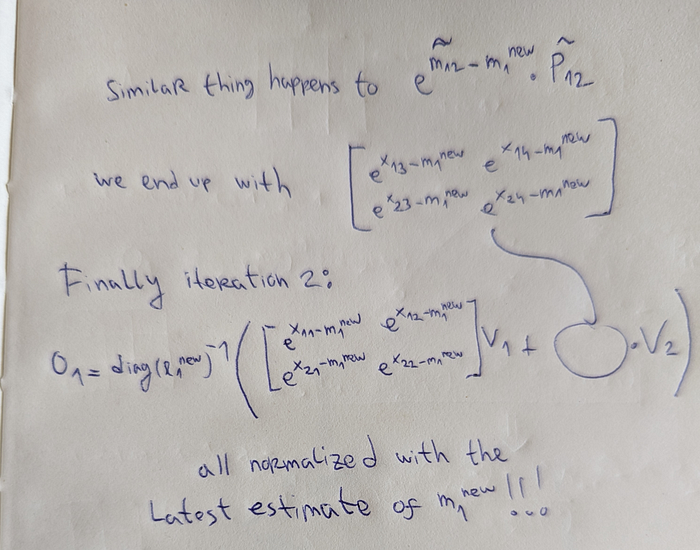 Similar thing happens to e^{m̃12 - m1^new} · P̃12
we end up with [ e^{x13-m1^new} e^{x14-m1^new}
e^{x23-m1^new} e^{x24-m1^new} ]
Finally iteration 2:
O1 = diag(l1^new)^-1 ( [ e^{x11-m1^new} e^{x12-m1^new}
e^{x21-m1^new} e^{x22-m1^new} ] V1 + ◯ · V2 )
all normalized with the
Latest estimate of m1^new !!!